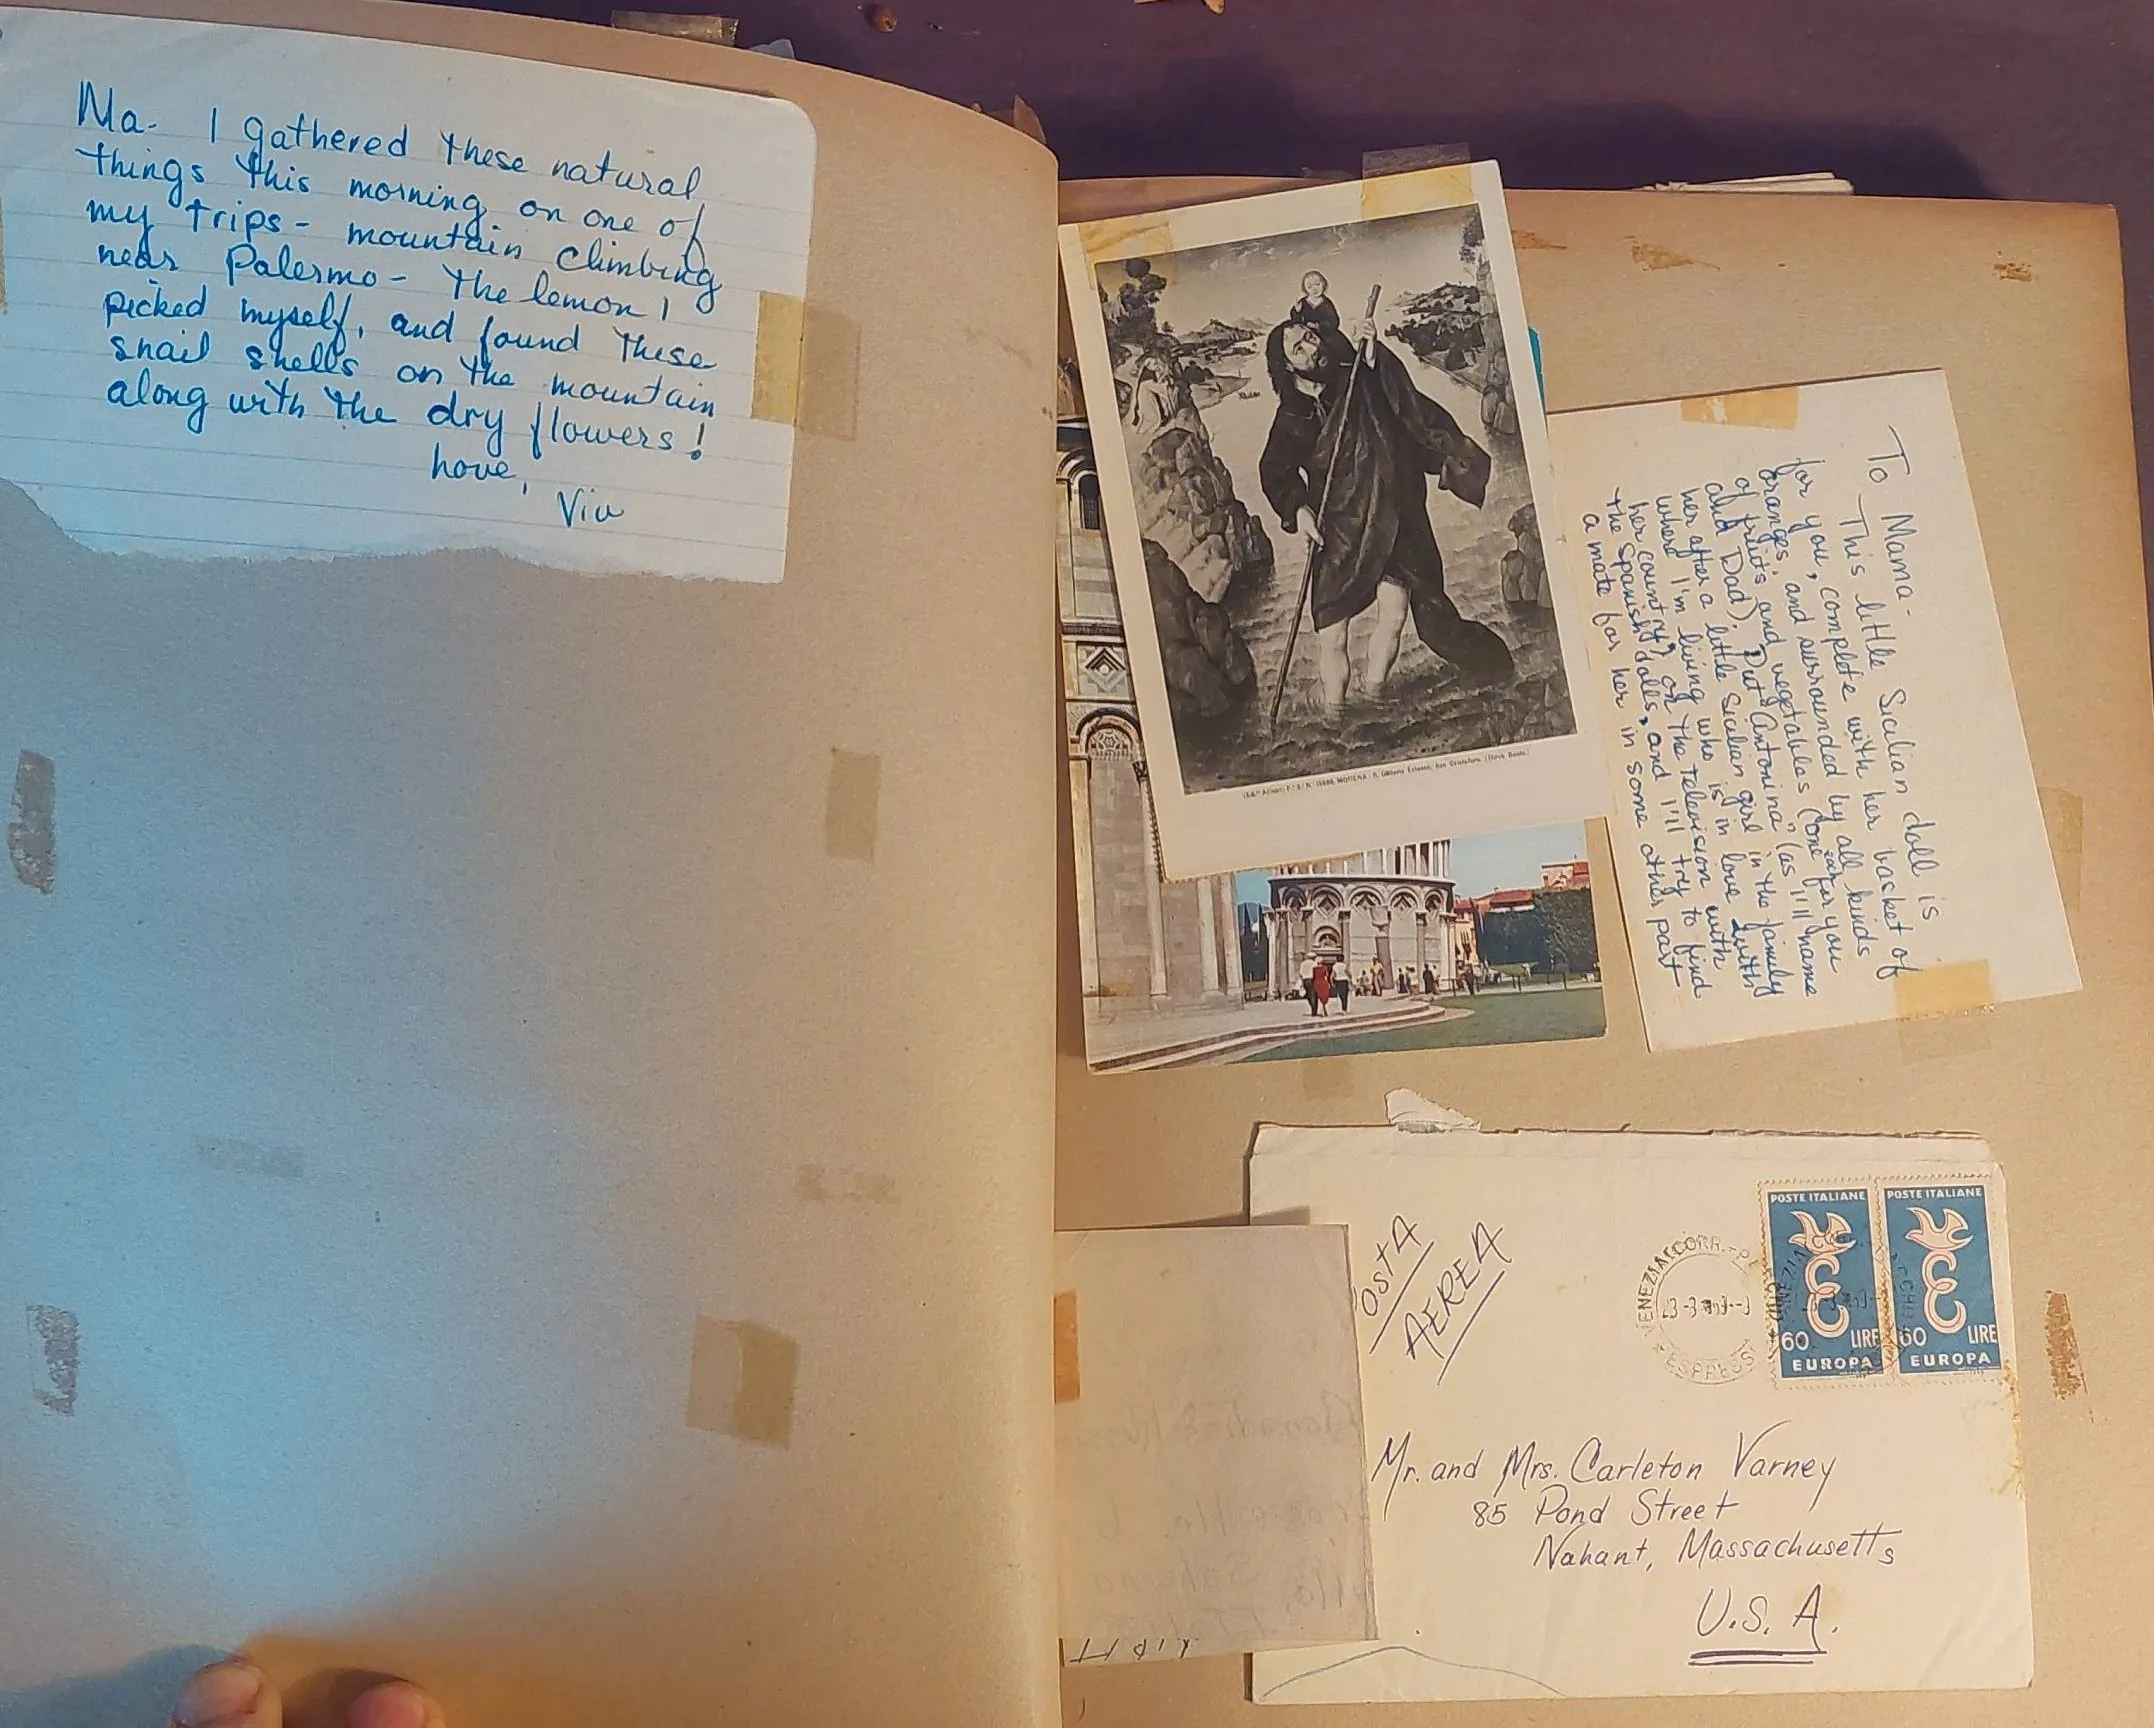 Ma- I gathered these natural
things this morning on one of
my trips- mountain climbing
near Palermo- The lemon I
picked myself, and found these
snail shells on the mountain
along with the dry flowers!
Love,
Viv
MODENA
To Mama-
This little Sicilian doll is
for you, complete with her basket of
oranges, and surrounded by all kinds
of fruits and vegetables (one each for you
and Dad). Put "Antonina" (as I'll name
her after a little Sicilian girl in the family
where I'm living who is in love with
her country) on the television with
the Spanish dolls, and I'll try to find
a mate for her in some other part
POSTA
AEREA
VENEZIA CORR.-P
POSTE ITALIANE
60 LIRE
EUROPA
POSTE ITALIANE
60 LIRE
EUROPA
Mr. and Mrs. Carleton Varney
85 Pond Street
Nahant, Massachusetts
U.S.A.